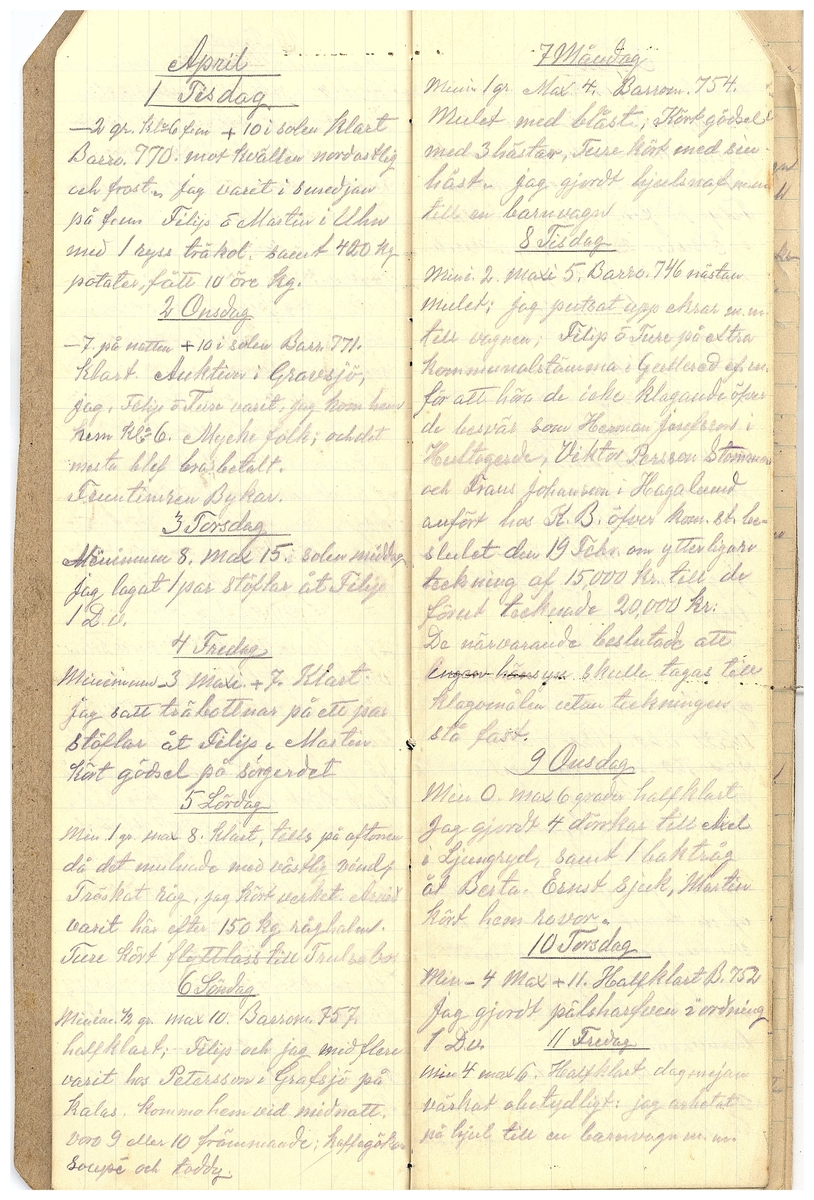 April
1 Tisdag
-2 gr. kl. 6 fm + 10 i solen klart
Barro. 770. mot kvällen nordostlig
och frost. jag varit i smedjan
på f.m. Filip ö Martin i Uhn
med 1 ryss träkol. samt 420 kg
potater, fått 10 öre kg.
2 Onsdag
-7. på natten +10 i solen Barr. 771.
klart. Auktion i Gravsjö,
jag, Filip ö Ture varit, jag kom hem
hem kl. 6. Mycke folk; och det
mesta blef bra betalt.
Fruntimren Bykar.
3 Torsdag
Minimum 8. max 15. i solen middag
jag lagat 1 par stöflar åt Filip
1 D.v.
4 Fredag
Minimum -3 maxi. + 7. Klart.
jag satt träbottnar på ett par
stöflar åt Filip. Martin
kört gödsel på sörgerdet
5 Lördag
Min. 1 gr. max 8. klart, tills på aftonen
då det mulnade med västlig vind,
Tröskat råg, jag kört verket.
varit här efter 150 kg råghalm.
Ture kört flyttlass till Trulsabo
6 Söndag
Minim. ½ gr. max 10. Barrom. 757.
halfklart; Filip och jag med flere
varit hos Petersson i Grafsjö på
kalas. kommo hem vid midnatt.
voro 9 eller 10 främmande; kaffegök
soupé och toddy.
7 Måndag
Minim 1 gr. Max 4. Barrom. 754.
Mulet med blåst; Kört gödsel
med 3 hästar, Ture kört med sin
häst. jag gjordt hjulnaf m.m
till en barnvagn
8 Tisdag
Mini. 2. maxi 5. Barro. 746 nästan
mulet; jag putsat upp ekrar m.m.
till vagnen; Filip ö Ture på extra
kommunalstämma i Gullered ef.m.
för att höra de icke klagande öfver
de besvär som Herman Josefsson i
Hultagerde, Viktor Persson Stommen
och Frans Johansson i Hagalund
anfört hos K. B. öfver kom. st. be-
slutet den 19 Febr. om ytterligare
teckning af 15,000 kr. till de
förut tecknade 20,000 kr:
De närvarande beslutade att
ingen hänsyn skulle tagas till
klagomålen utan teckningen
stå fast.
9 Onsdag
Min 0. max 6 grader halfklart
Jag gjordt 4 dörrkar till Axel
i Ljungryd, samt 1 baktråg
åt Berta. Ernst sjuk, Martin
kört hem rovor.
10 Torsdag
Min - 4 Max + 11. Halfklart B. 752
Jag gjordt pälsharfven i ordning
1 D.v.
11 Fredag
min 4 max 6. Halfklart dagmejan
värkat obetydligt: jag arbetat
på hjul till en barnvagn m.m.